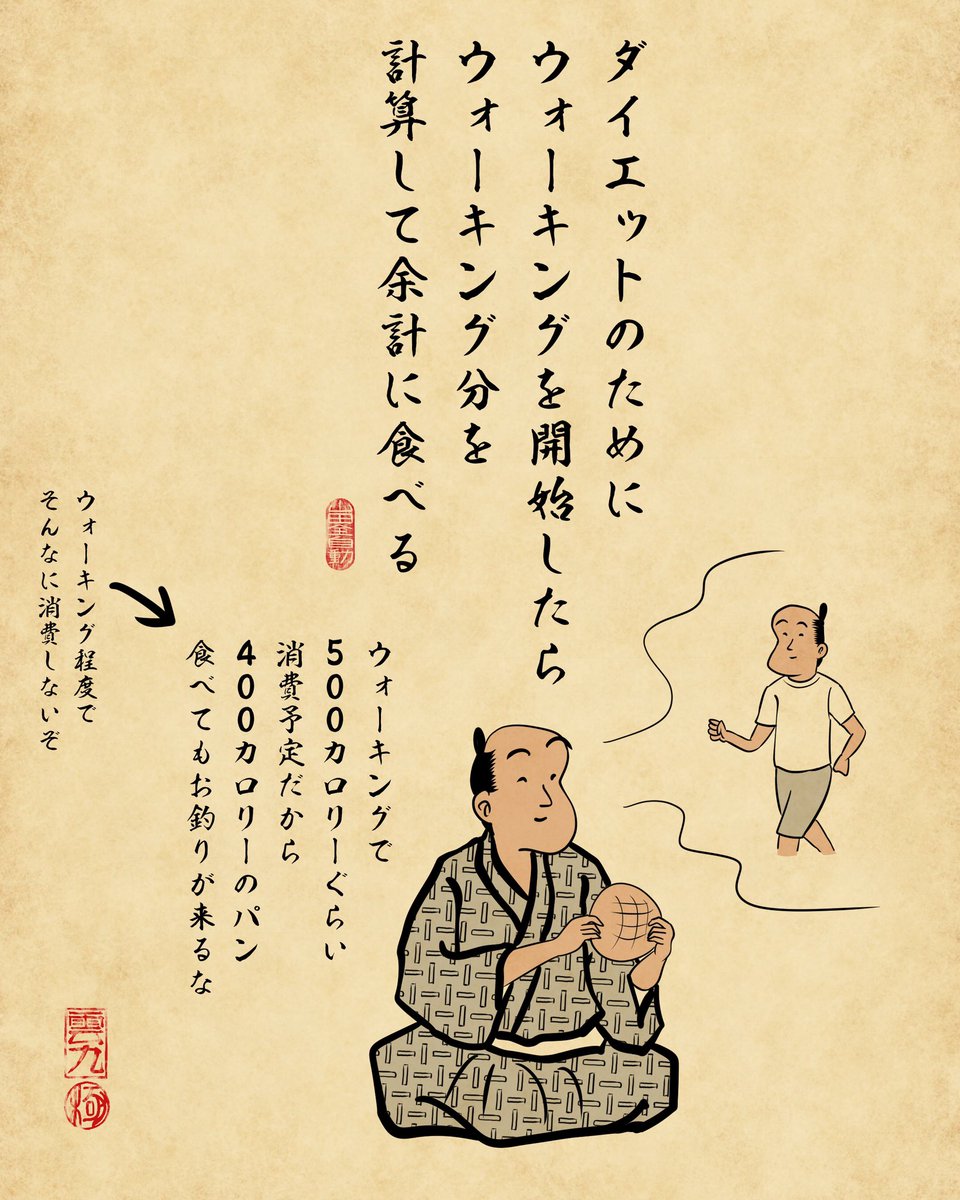 ダイエットのために
ウォーキングを開始したら
ウォーキング分を
計算して余計に食べる
ウォーキングで
500カロリーぐらい
消費予定だから
400カロリーのパン
食べてもお釣りが来るな
ウォーキング程度で
そんなに消費しないぞ